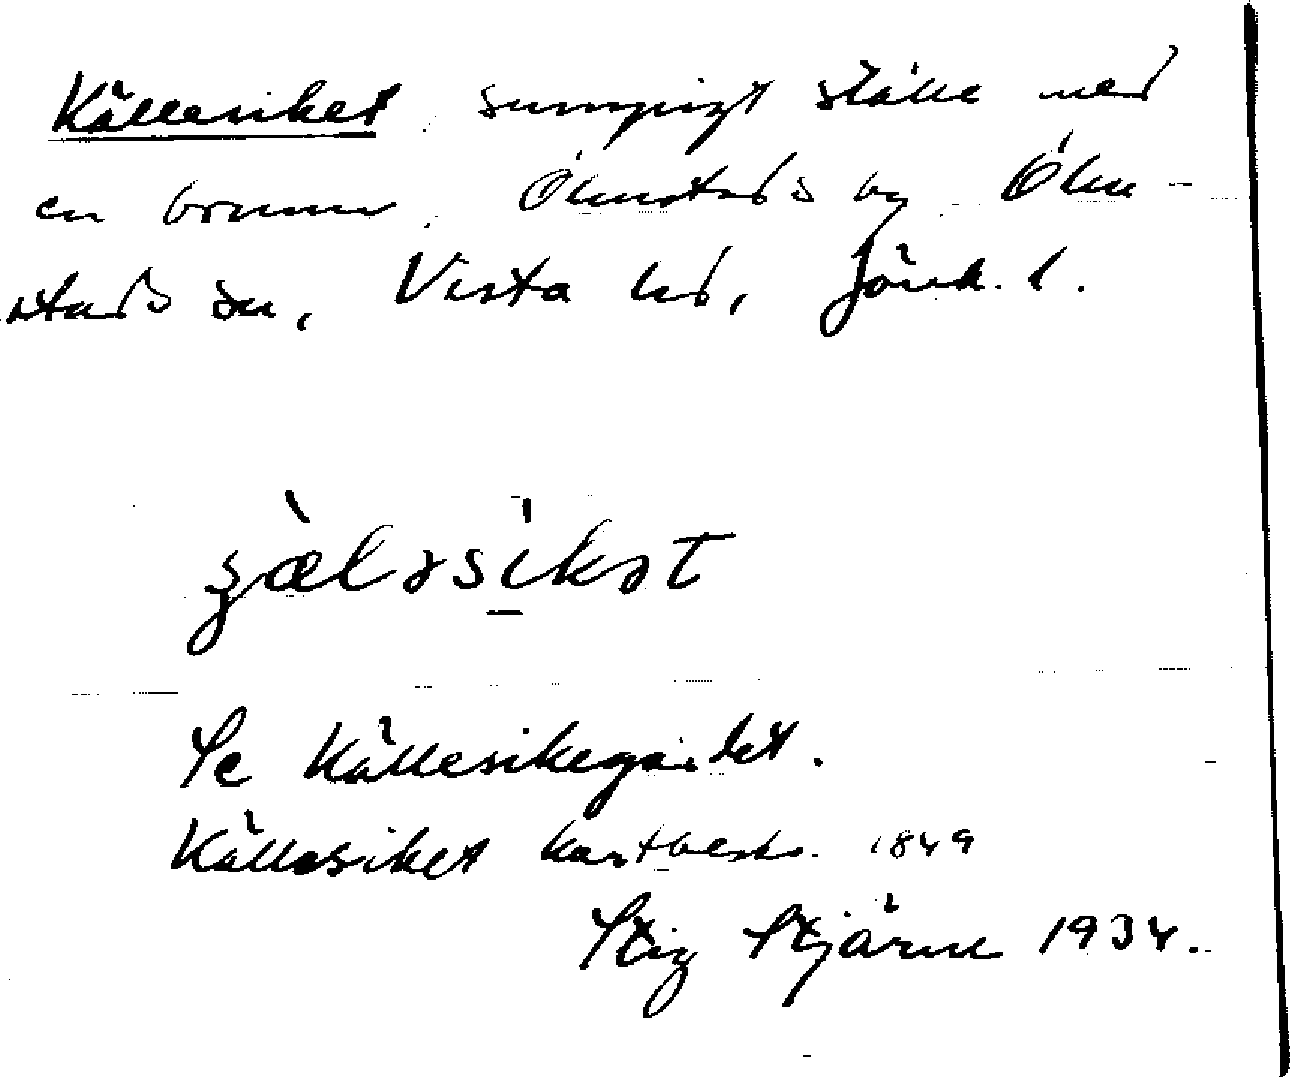 Källesiket sumpigt ställe med
en brunn. Ölmstads by Ölm-
stads sn, Vista hd, Jönk. l.
ʒæ̀ləsi̠kət
Se Källesikegärdet.
Källesiket kartbeskr. 1849
Stig Stjärne 1934.